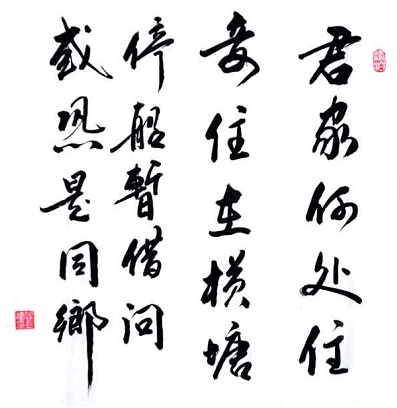 君家何处住
妾住在横塘
停船暫借问
或恐是同鄉